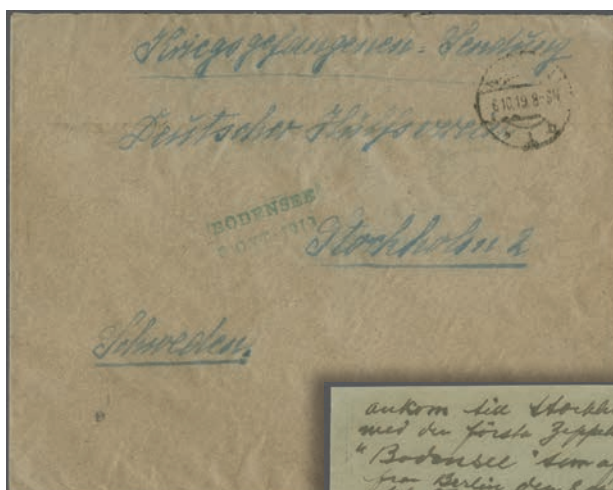 Kriegsgefangenen-Sendung
6.10.19.8-9N
Deutscher Hilfsverein
BODENSEE
8 OKT. 1919
Stockholm 2
Schweden.
ankom till Stockh
med den första Zeppe
"Bodensee" som a
från Berlin den 8